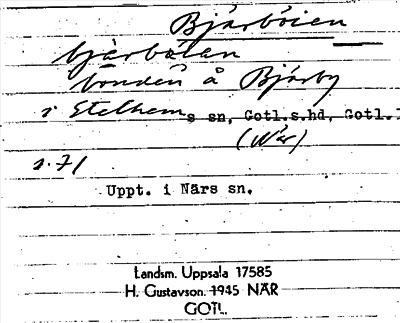 Bjärböien
bjärbålan
bonden å Bjärby
i Stelhems sn, Gotl.s.hd, Gotl.
(När)
s. 71
Uppt. i Närs sn.
Landsm. Uppsala 17585
H. Gustavson. 1945 NÄR
GOTL.